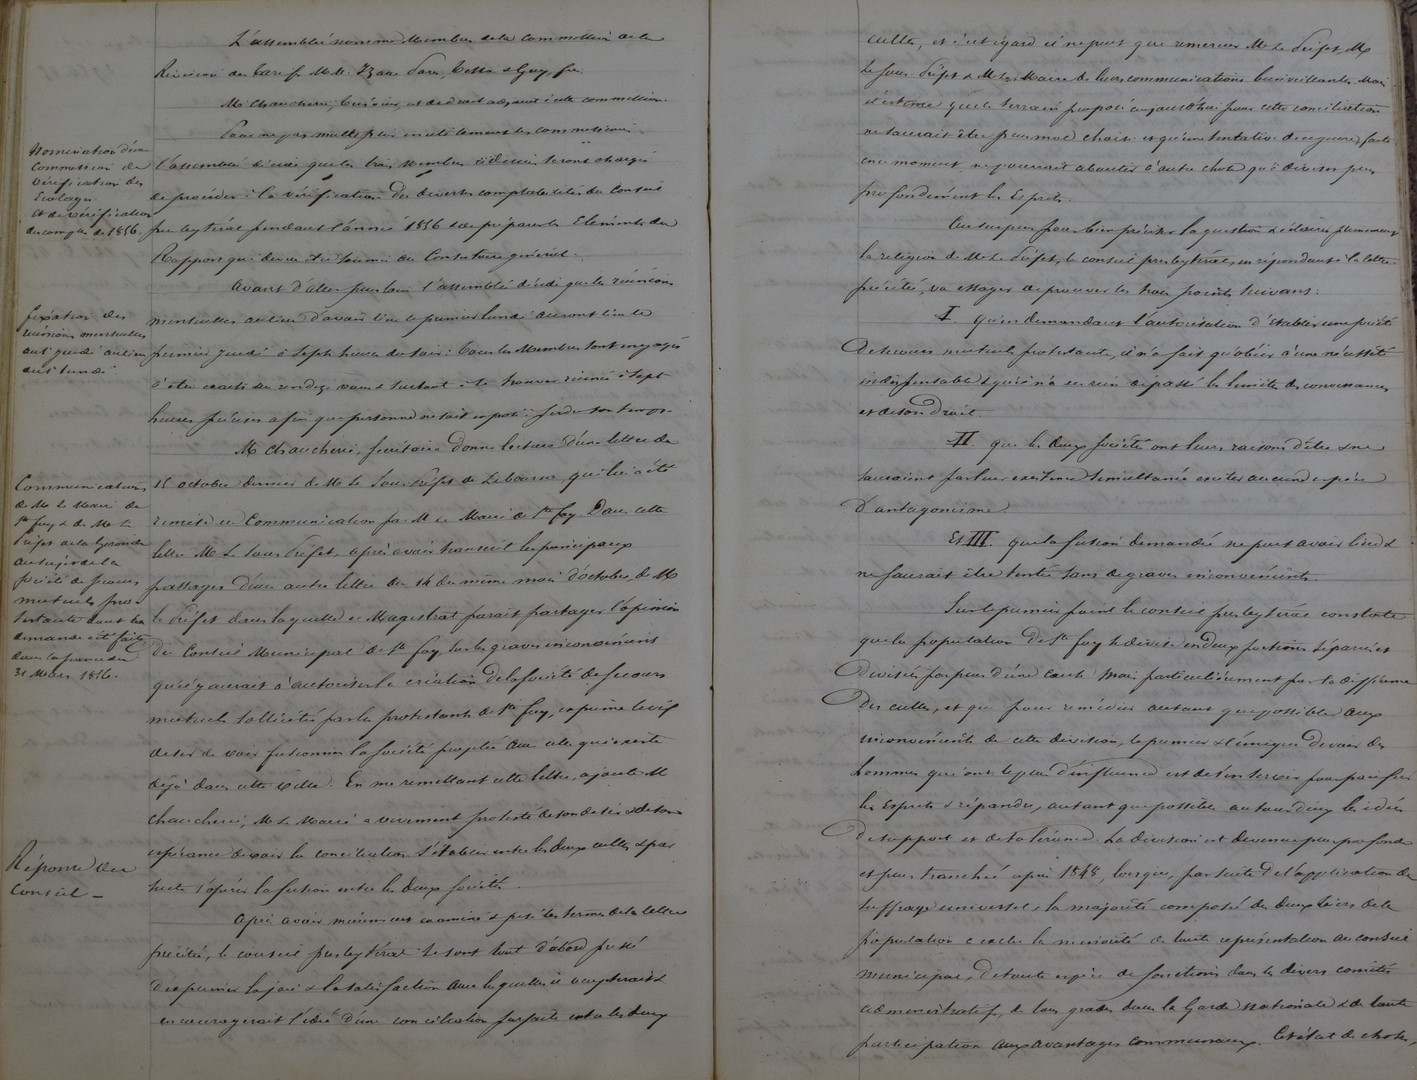 L'assemblée nomme Membres de la Commission de la
Révision du tarif MM. Isaac Pons, Cotte & Guy fils.
M. Chaucherie, Trésorier, est de droit adjoint à cette commission.
Pour ne pas multiplier inutilement les commissions
Nomination d'une
Commission de
Vérification des
Ecolages
et de vérification
du compte de 1856.
l'assemblée décide que les trois membres ci dessus seront chargés
de procéder à la vérification des diverses comptabilités du Conseil
presbytéral pendant l'année 1856 & de préparer les Eléments du
Rapport qui devra être soumis au Consistoire général.
Avant d'aller plus loin l'assemblée décide que les réunions
fixation des
réunions mensuelles
au 1er jeudi au lieu
du 1er lundi
mensuelles au lieu d'avoir lieu le premier lundi auront lieu le
premier jeudi à sept heures du soir. Tous les Membres sont engagés
à être exacts au rendez vous & surtout à se trouver réunis à sept
heures précises afin que personne ne soit exposé à perdre son temps.
M. Chaucherie, secrétaire donne lecture d'une lettre du
Communication
de M. le Maire de
Ste foy & de M. le
Préfet de la Gironde
au sujet de la
Société de secours
mutuels pro-
testante dont la
demande a été faite
dans la séance du
31 Mars 1856.
15 octobre dernier de M. le Sous Préfet de Libourne, qui lui a été
remise en Communication par M. le Maire de Ste foy. Dans cette
lettre M. le Sous Préfet, après avoir transcrit les principaux
passages d'une autre lettre du 14 du même mois d'octobre de M.
le Préfet dans laquelle ce Magistrat paraît partager l'opinion
du Conseil Municipal de Ste foy sur les graves inconvénients
qu'il y aurait à autoriser la création de la Société de Secours
mutuels sollicitée par les protestants de Ste foy, exprime le vif
désir de voir fusionner la Société projetée avec celle qui existe
déjà dans cette ville. En me remettant cette lettre, ajoute M.
Chaucherie, M. le Maire a vivement protesté de son désir & de son
espérance de voir la conciliation s'établir entre les deux cultes & par
suite s'opérer la fusion entre les deux sociétés.
Réponse du
Conseil –
Après avoir mûrement examiné & pesé les termes de la lettre
précitée, le conseil presbytéral se sent tout d'abord pressé
d'exprimer la joie & la satisfaction avec lesquelles il accepterait &
encouragerait l'idée d'une conciliation parfaite entre les deux
cultes, et à cet égard il ne peut que remercier M. le Préfet, M.
le Sous Préfet & M. le Maire de leurs communications bienveillantes, mais
il estime que le terrain proposé aujourd'hui pour cette conciliation
ne saurait être plus mal choisi et qu'une tentative de ce genre, faite
en ce moment, ne pourrait aboutir à autre chose qu'à diviser plus
profondément les Esprits.
Au surplus pour bien préciser la question & éclairer pleinement
la religion de M. le Préfet, le conseil presbytéral, en répondant à la lettre
précitée, va essayer de prouver les trois points suivans:
I. qu'en demandant l'autorisation d'établir une Société
de secours mutuels protestante, il n'a fait qu'obéir à une nécessité
indispensable & qu'il n'a en rien dépassé les limites des convenances
et de son Droit.
II. que les deux Sociétés ont leurs raisons d'être & ne
sauraient par leur existence simultanée exciter aucune espèce
d'antagonisme
Et III. que la fusion demandée ne peut avoir lieu &
ne saurait être tentée sans de graves inconvénients.
Sur le premier point le conseil presbytéral constate
que la population de Ste foy se divise en deux portions séparées et
divisées par plus d'une cause mais particulièrement par la différence
des cultes, et que pour remédier autant que possible aux
inconvénients de cette division, le premier & l'unique devoir des
hommes qui ont le plus d'influence est de s'interposer pour pacifier
les Esprits & répandre, autant que possible autour d'eux les idées
de support et de tolérance. La division est devenue plus profonde
et plus tranchée après 1848, lorsque, par suite de l'application du
suffrage universel, la majorité composée des deux tiers de la
population a exclu la minorité de toute représentation au conseil
municipal, de toute espèce de fonctions dans les divers comités
administratifs, de tous grades dans la Garde nationale & de toute
participation aux avantages communaux. Cet état de choses,